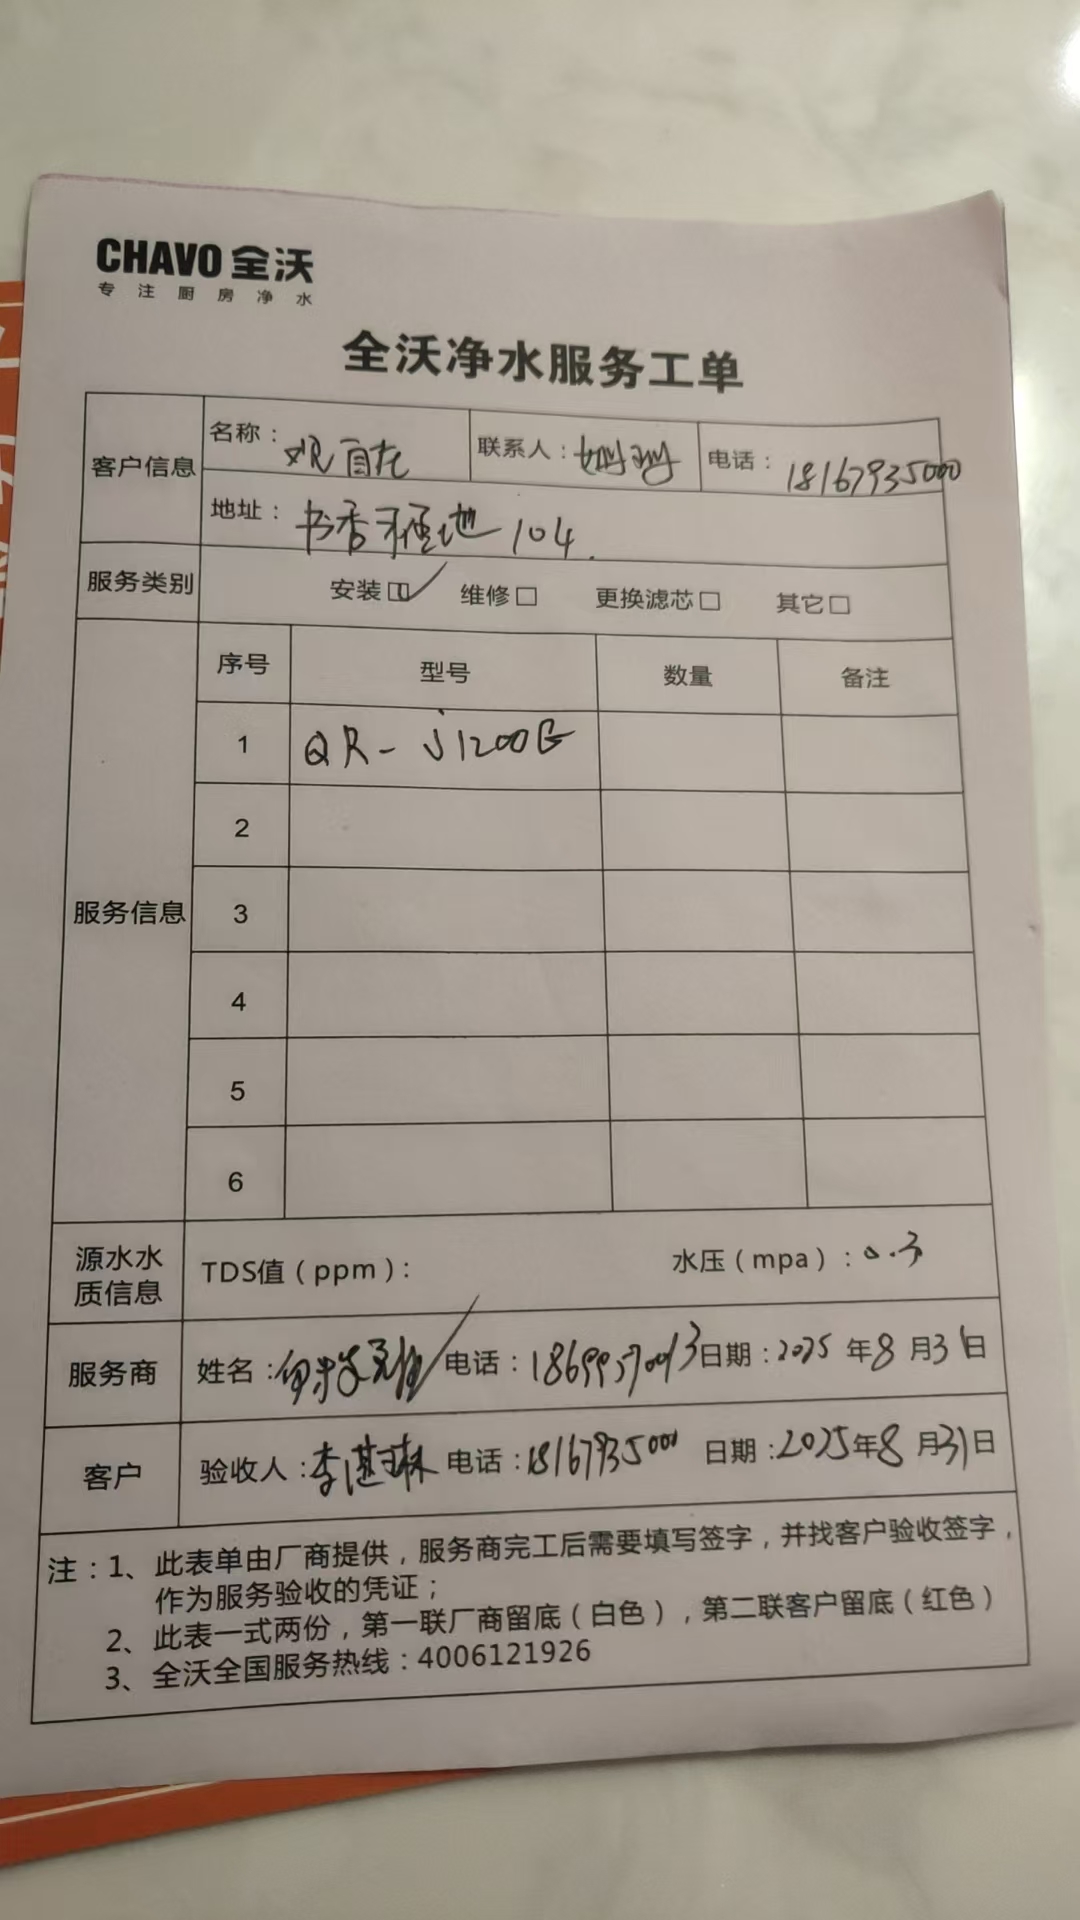 CHAVO 全沃
专注厨房净水
全沃净水服务工单
客户信息 名称：观自在 联系人：姗姗 电话：18167935000
地址：书香雅地104.
服务类别 安装☑ 维修□ 更换滤芯□ 其它□
服务信息 序号 型号 数量 备注
1 QR-J1200G
2
3
4
5
6
源水水质信息 TDS值（ppm）： 水压（mpa）：0.3
服务商 姓名： 电话：18699370013 日期：2025年8月31日
客户 验收人：李湛琳 电话：18167935000 日期：2025年8月31日
注：1、此表单由厂商提供，服务商完工后需要填写签字，并找客户验收签字，
作为服务验收的凭证；
2、此表一式两份，第一联厂商留底（白色），第二联客户留底（红色）
3、全沃全国服务热线：4006121926